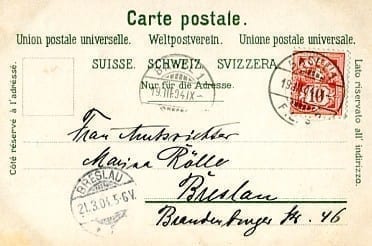 Carte postale.
Union postale universelle. Weltpostverein. Unione postale universale.
SUISSE. SCHWEIZ. SVIZZERA.
Nur für die Adresse.
Côté réservé à l'adresse.
Lato riservato all' indirizzo.
10
Frau Amtsrichter
Marina Rölle
Breslau
Brandenburger Str. 46
BRESLAU
21.3.04.5-6V.